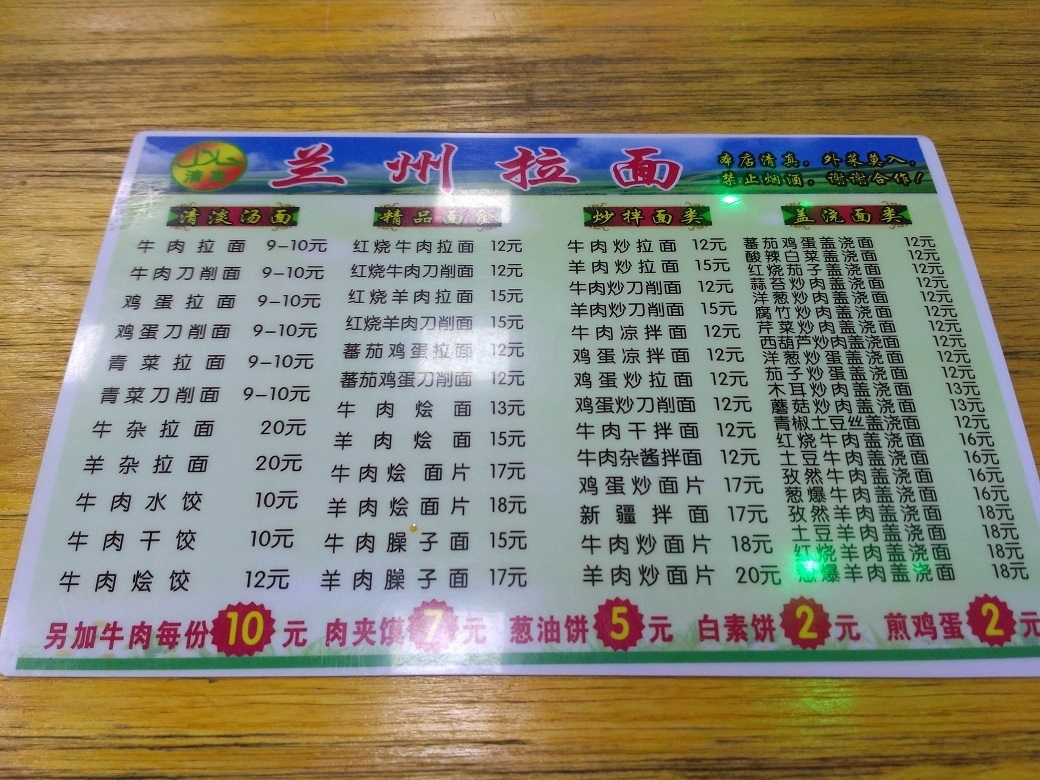 清真
兰州拉面
本店清真，外菜莫入，
禁止烟酒，谢谢合作！
清淡汤面
牛肉拉面 9-10元
牛肉刀削面 9-10元
鸡蛋拉面 9-10元
鸡蛋刀削面 9-10元
青菜拉面 9-10元
青菜刀削面 9-10元
牛杂拉面 20元
羊杂拉面 20元
牛肉水饺 10元
牛肉干饺 10元
牛肉烩饺 12元
精品面食
红烧牛肉拉面 12元
红烧牛肉刀削面 12元
红烧羊肉拉面 15元
红烧羊肉刀削面 15元
蕃茄鸡蛋拉面 12元
蕃茄鸡蛋刀削面 12元
牛肉烩面 13元
羊肉烩面 15元
牛肉烩面片 17元
羊肉烩面片 18元
牛肉臊子面 15元
羊肉臊子面 17元
炒拌面类
牛肉炒拉面 12元
羊肉炒拉面 15元
牛肉炒刀削面 12元
羊肉炒刀削面 15元
牛肉凉拌面 12元
鸡蛋凉拌面 12元
鸡蛋炒拉面 12元
鸡蛋炒刀削面 12元
牛肉干拌面 12元
牛肉杂酱拌面 12元
鸡蛋炒面片 17元
新疆拌面 17元
牛肉炒面片 18元
羊肉炒面片 20元
盖浇面类
蕃茄鸡蛋盖浇面 12元
酸辣白菜盖浇面 12元
红烧茄子盖浇面 12元
蒜苔炒肉盖浇面 12元
洋葱炒肉盖浇面 12元
腐竹炒肉盖浇面 12元
芹菜炒肉盖浇面 12元
西葫芦炒肉盖浇面 12元
洋葱炒蛋盖浇面 12元
茄子炒蛋盖浇面 12元
木耳炒肉盖浇面 13元
蘑菇炒肉盖浇面 13元
青椒土豆丝盖浇面 12元
红烧牛肉盖浇面 16元
土豆牛肉盖浇面 16元
孜然牛肉盖浇面 16元
葱爆牛肉盖浇面 16元
孜然羊肉盖浇面 18元
土豆羊肉盖浇面 18元
红烧羊肉盖浇面 18元
葱爆羊肉盖浇面 18元
另加牛肉每份10元 肉夹馍7元 葱油饼5元 白素饼2元 煎鸡蛋2元